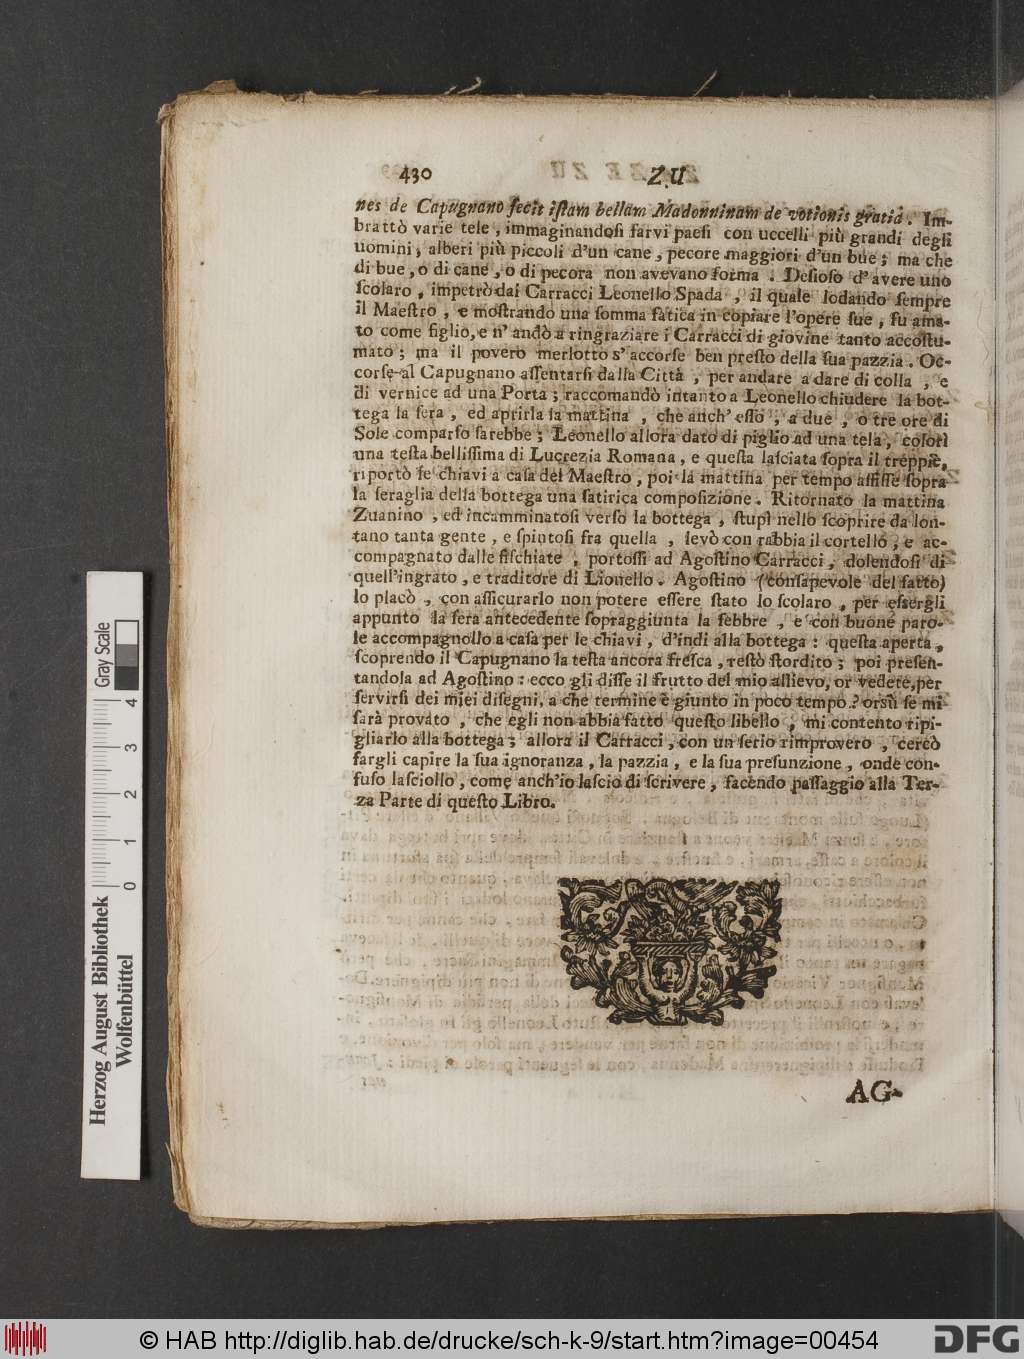 430 ZU
nes de Capugnano fecit istam bellam Madonninam de votionis gratia. Im-
brattò varie tele, immaginandosi farvi paesi con uccelli più grandi degli
uomini, alberi più piccoli d'un cane, pecore maggiori d'un bue; ma che
di bue, o di cane, o di pecora non avevano forma. Desioso d'avere uno
scolaro, impetrò dai Carracci Leonello Spada, il quale lodando sempre
il Maestro, e mostrando una somma fatica in copiare l'opere sue, fu ama-
to come figlio, e n'andò a ringraziare i Carracci di giovine tanto accostu-
mato; ma il povero merlotto s'accorse ben presto della sua pazzia. Oc-
corse al Capugnano assentarsi dalla Città, per andare a dare di colla, e
di vernice ad una Porta; raccomandò intanto a Leonello chiudere la bot-
tega la sera, ed aprirla la mattina, che anch'esso, a due, o tre ore di
Sole comparso sarebbe; Leonello allora dato di piglio ad una tela, colorì
una testa bellissima di Lucrezia Romana, e questa lasciata sopra il treppiè,
riportò le chiavi a casa del Maestro, poi la mattina per tempo affisse sopra
la seraglia della bottega una satirica composizione. Ritornato la mattina
Zuanino, ed incamminatosi verso la bottega, stupì nello scoprire da lon-
tano tanta gente, e spintosi fra quella, levò con rabbia il cortello, e ac-
compagnato dalle fischiate, portossi ad Agostino Carracci, dolendosi di
quell'ingrato, e traditore di Lionello. Agostino (consapevole del fatto)
lo placò, con assicurarlo non potere essere stato lo scolaro, per essergli
appunto la sera antecedente sopraggiunta la febbre, e con buone paro-
le accompagnollo a casa per le chiavi, d'indi alla bottega: questa aperta,
scoprendo il Capugnano la testa ancora fresca, restò stordito; poi presen-
tandola ad Agostino: ecco gli disse il frutto del mio allievo, or vedete, per
servirsi dei miei disegni, a che termine è giunto in poco tempo? orsù se mi
sarà provato, che egli non abbia fatto questo libello, mi contento ripi-
gliarlo alla bottega; allora il Carracci, con un serio rimprovero, cercò
fargli capire la sua ignoranza, la pazzia, e la sua presunzione, onde con-
fuso lasciollo, come anch'io lascio di scrivere, facendo passaggio alla Ter-
za Parte di questo Libro.
AG-
Gray Scale
0 1 2 3 4
Herzog August Bibliothek
Wolfenbüttel
© HAB http://diglib.hab.de/drucke/sch-k-9/start.htm?image=00454
DFG